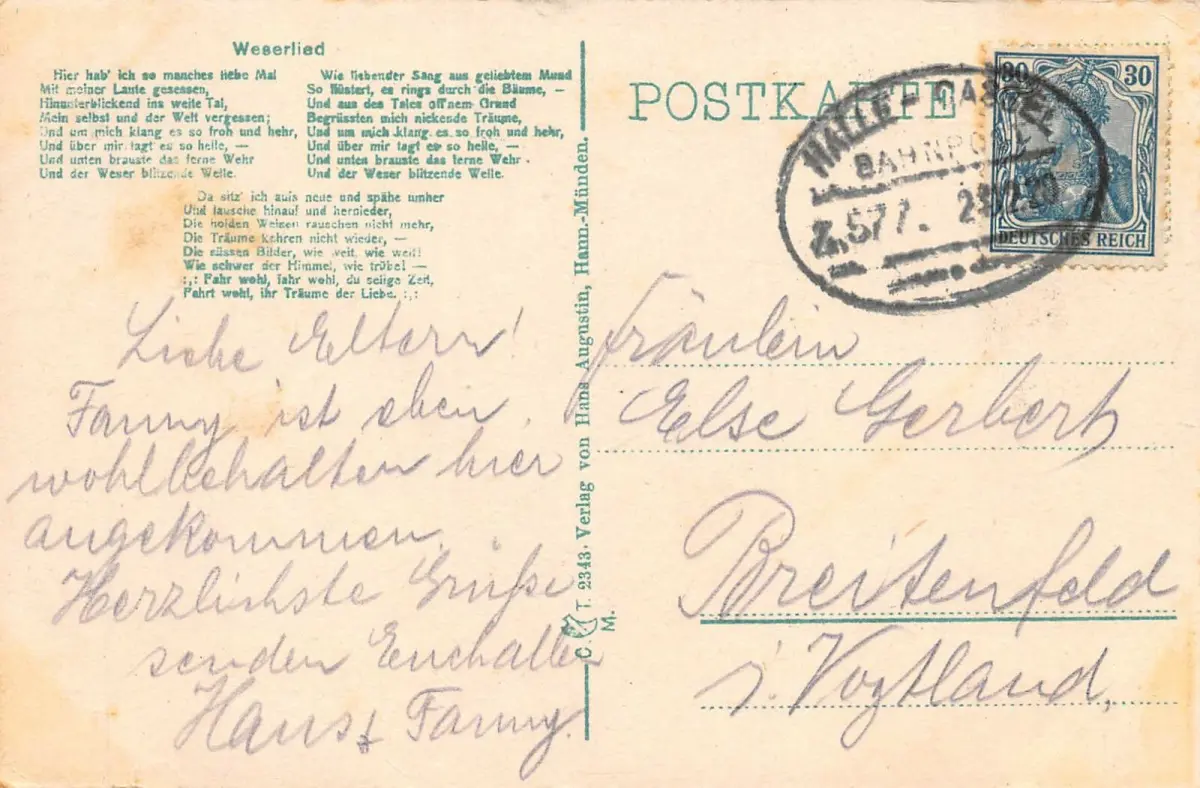 Weserlied
Hier hab' ich so manches liebe Mal
Mit meiner Laute gesessen,
Hinunterblickend ins weite Tal,
Mein selbst und der Welt vergessen;
Und um mich klang es so froh und hehr,
Und über mir tagt es so helle, —
Und unten brauste das ferne Wehr
Und der Weser blitzende Welle.
Wie liebender Sang aus geliebtem Mund
So flüstert, es rings durch die Bäume, —
Und aus des Tales off'nem Grund
Begrüssten mich nickende Träume,
Und um mich klang es so froh und hehr,
Und über mir tagt es so helle, —
Und unten brauste das ferne Wehr
Und der Weser blitzende Welle.
Da sitz' ich aufs neue und spähe umher
Und lausche hinauf und hernieder,
Die holden Weisen rauschen nicht mehr,
Die Träume kehren nicht wieder, —
Die süssen Bilder, wie weit, wie weit!
Wie schwer der Himmel, wie trübe! —
:,: Fahr wohl, fahr wohl, du selige Zeit,
Fahrt wohl, ihr Träume der Liebe. :,:
Liebe Eltern!
Fanny ist eben
wohlbehalten hier
angekommen.
Herzlichste Grüße
senden Euch allen
Hans + Fanny.
T. 2343. Verlag von Hans Augustin, Hann.-Münden.
M.
POSTKARTE
HALLE - CASSEL
BAHNPOST
Z. 577.
30 30
DEUTSCHES REICH
Fräulein
Else Gerbert
Breitenfeld
i. Vogtland.